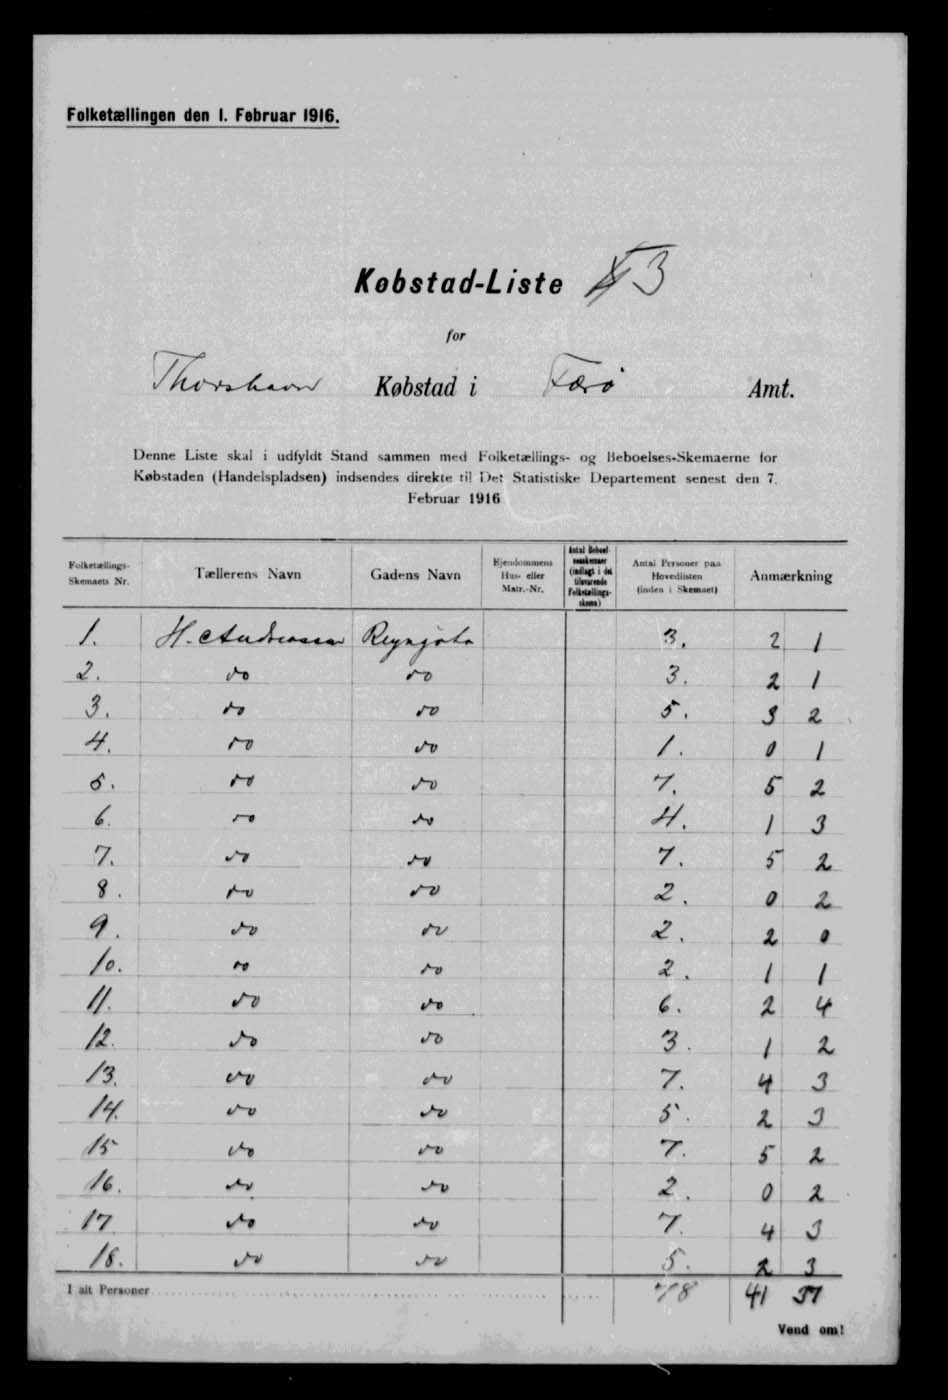 Folketællingen den 1. Februar 1916.
Købstad-Liste 3
for
Thorshavn Købstad i Færø Amt.
Denne Liste skal i udfyldt Stand sammen med Folketællings- og Beboelses-Skemaerne for
Købstaden (Handelspladsen) indsendes direkte til Det Statistiske Departement senest den 7.
Februar 1916
Folketællings-
Skemaets Nr.
Tællerens Navn
Gadens Navn
Ejendommens
Hus- eller
Matr.-Nr.
Antal Beboel-
sesskemaer
(indlagt i det
tilsvarende
Folketællings-
skema)
Antal Personer paa
Hovedlisten
(inden i Skemaet)
Anmærkning
1. H. Andreassen Reyngøta 3. 2 1
2. do do 3. 2 1
3. do do 5. 3 2
4. do do 1. 0 1
5. do do 7. 5 2
6. do do 4. 1 3
7. do do 7. 5 2
8. do do 2. 0 2
9. do do 2. 2 0
10. do do 2. 1 1
11. do do 6. 2 4
12. do do 3. 1 2
13. do do 7. 4 3
14. do do 5. 2 3
15 do do 7. 5 2
16. do do 2. 0 2
17 do do 7. 4 3
18. do do 5. 2 3
I alt Personer 78 41 37
Vend om!